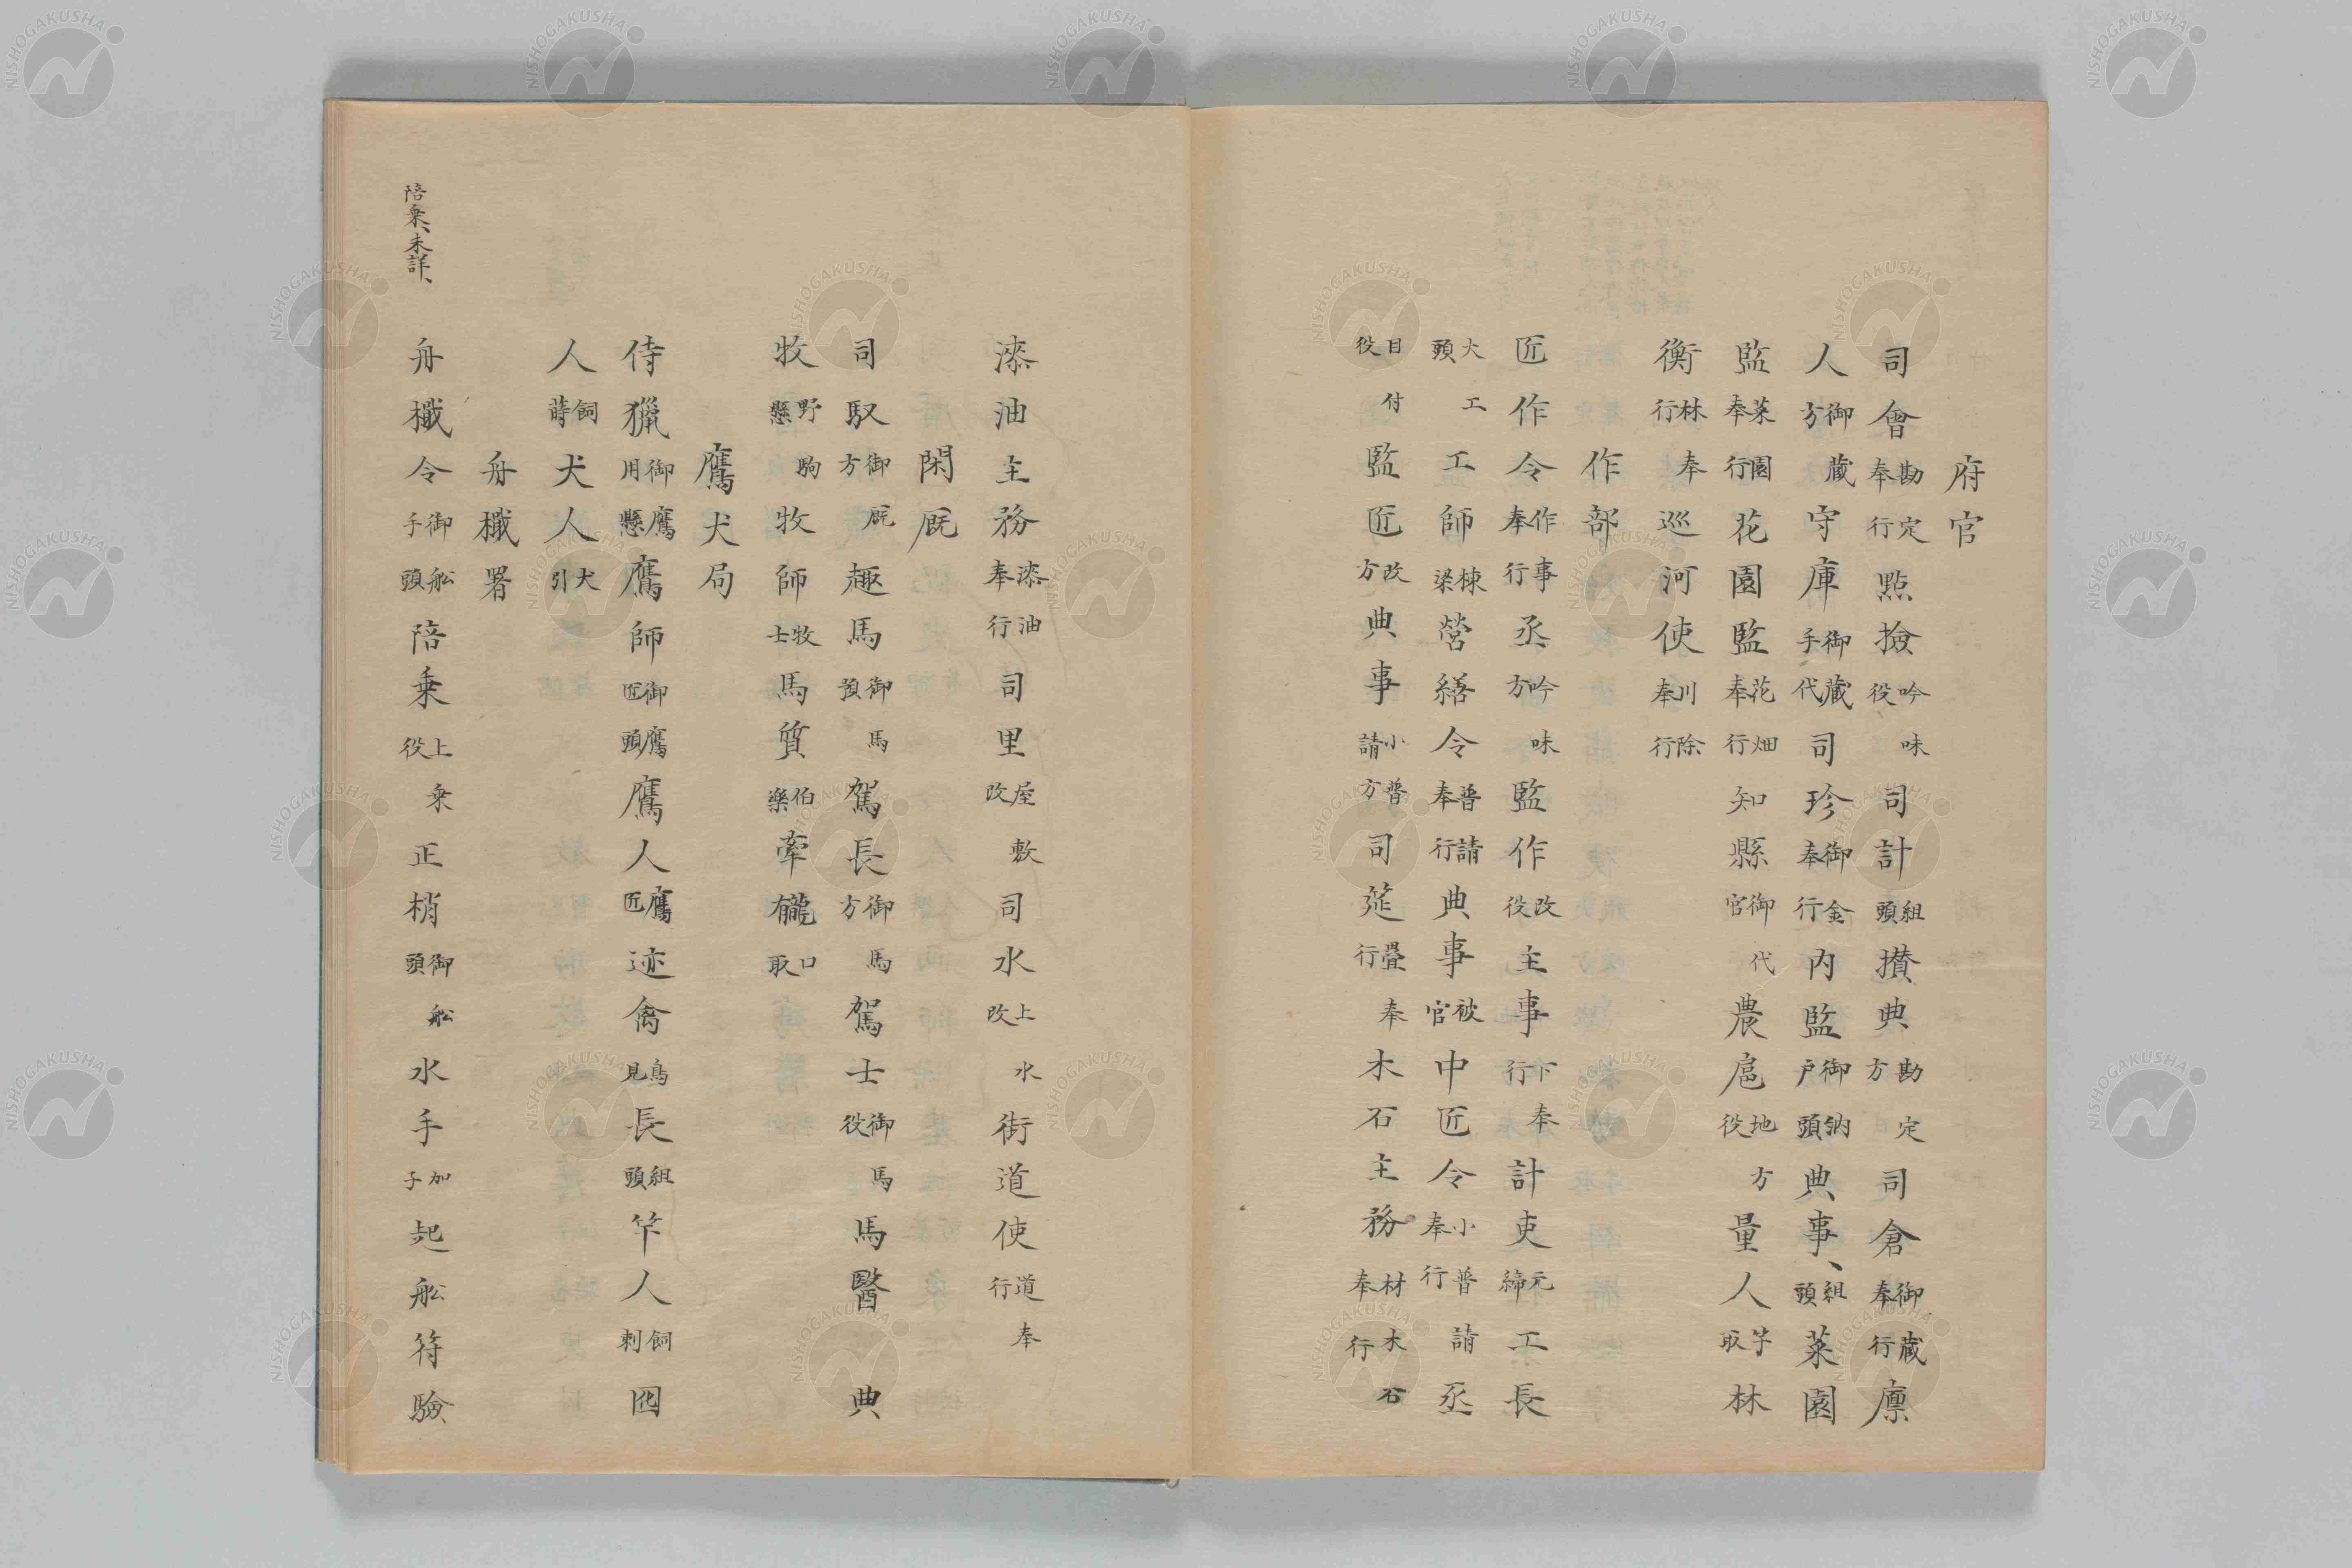 府官
司會勘定奉行點撿吟味役司計組頭攅典勘定方司倉御蔵奉行廩
人御蔵方守庫御蔵手代司珍御金奉行内監御納戸頭典事、組頭菜園
監菜園奉行花園監花畑奉行知縣御代官農扈地方役量人竿取林
衡林奉行巡河使川除奉行
作部
匠作令作事奉行丞吟味方監作改役主事下奉行計吏元締工長
大工頭工師棟梁營繕令普請奉行典事被官中匠令小普請奉行丞
目付役監匠改方典事小普請方司筵疊奉行木石主務材木石奉行
漆油主務漆油奉行司里屋敷改司水上水改街道使道奉行
閑厩
司馭御厩方趣馬御馬預駕長御馬方駕士御馬役馬醫典
牧野駒懸牧師牧士馬質伯樂牽龓口取
鷹犬局
侍獵御鷹用懸鷹師御鷹匠頭鷹人鷹匠迹禽鳥見長組頭竿人飼刺囮
人飼蒔犬人犬引
舟檝署
陪乗、未詳、
舟檝令御舩手頭陪乗上乗役正梢御舩頭水手加子起舩符驗